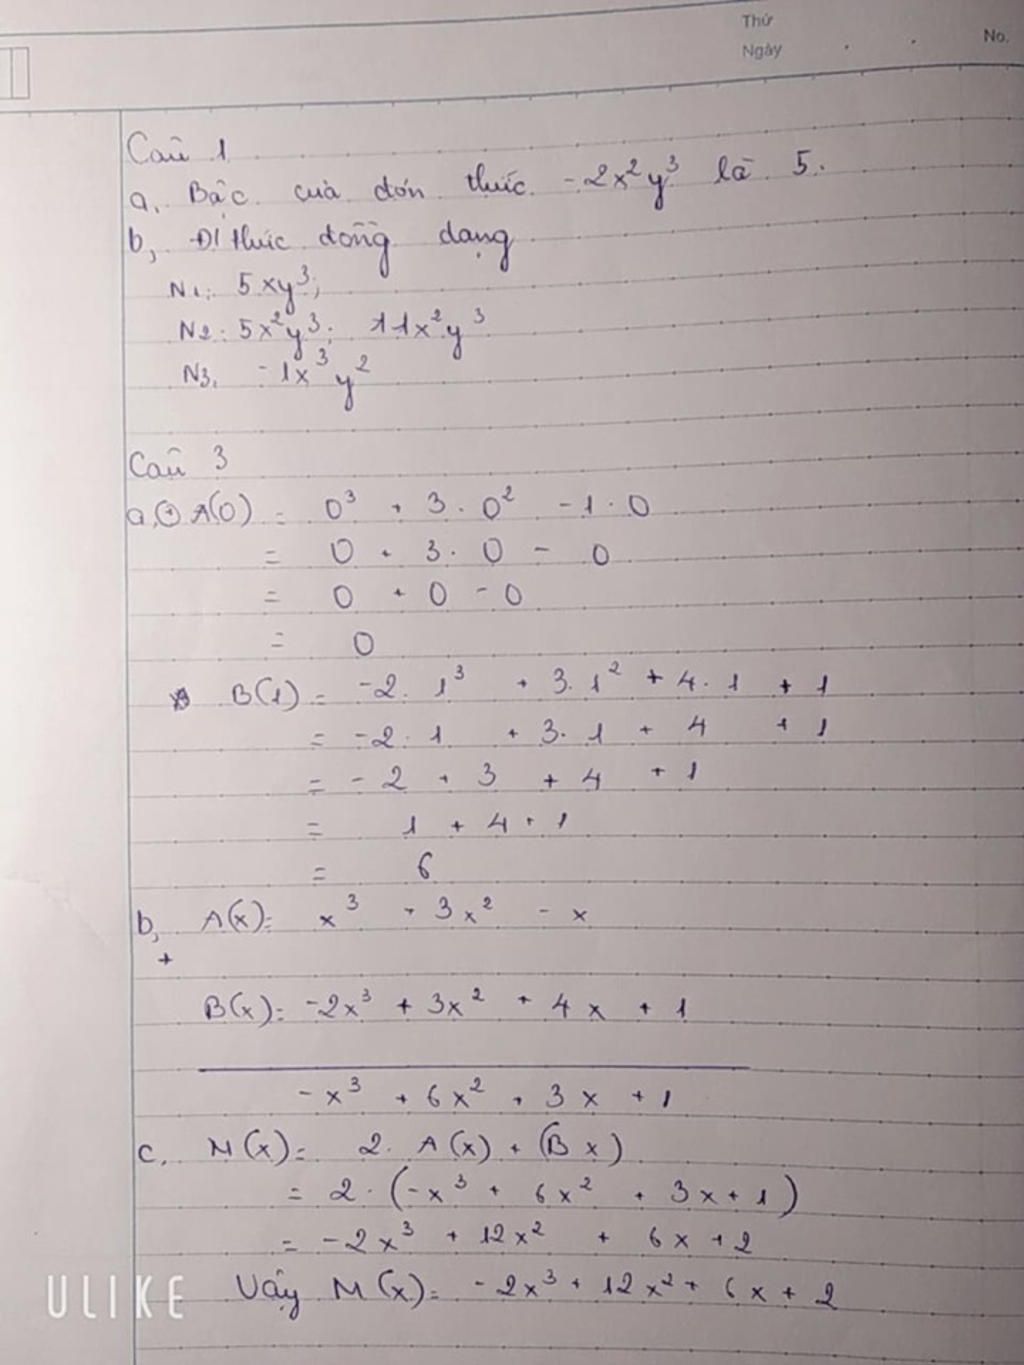 Thứ
Ngày
No.
Câu 1
a, Bậc của đơn thức -2x²y³ là 5.
b, Đ thức đồng dạng
N1: 5xy³;
N2: 5x²y³; 11x²y³
N3. -1x³y²
Câu 3
a, + A(0) = 0³ + 3.0² - 1.0
= 0 + 3.0 - 0
= 0 + 0 - 0
= 0
B(1) = -2.1³ + 3.1² + 4.1 + 1
= -2.1 + 3.1 + 4 + 1
= -2 + 3 + 4 + 1
= 1 + 4 + 1
= 6
b, A(x) = x³ + 3x² - x
+
B(x) = -2x³ + 3x² + 4x + 1
-x³ + 6x² + 3x + 1
c, M(x) = 2. A(x) + (Bx)
= 2.(-x³ + 6x² + 3x + 1)
= -2x³ + 12x² + 6x + 2
Vậy M(x) = -2x³ + 12x² + 6x + 2
ULIKE